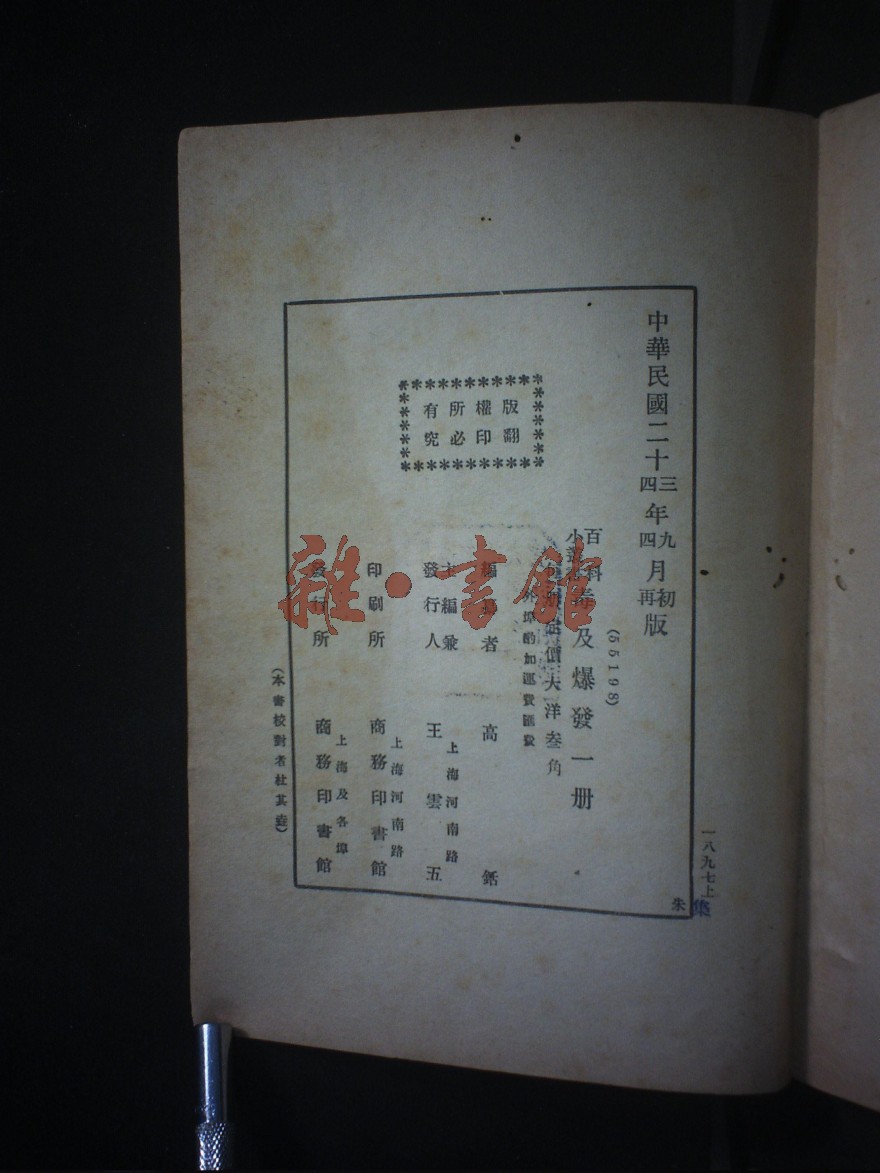 中華民國二十三年九月初版
四四再
(55198)
百科
小叢書
毒及爆發一册
價大洋叁角
外埠酌加運費匯費
版權所有
翻印必究
編著者 高銛
主編兼
發行人 王雲五
上海河南路
印刷所 商務印書館
上海河南路
發行所 商務印書館
上海及各埠
(本書校對者杜其垚)
一八九七上
朱
集
雜·書館